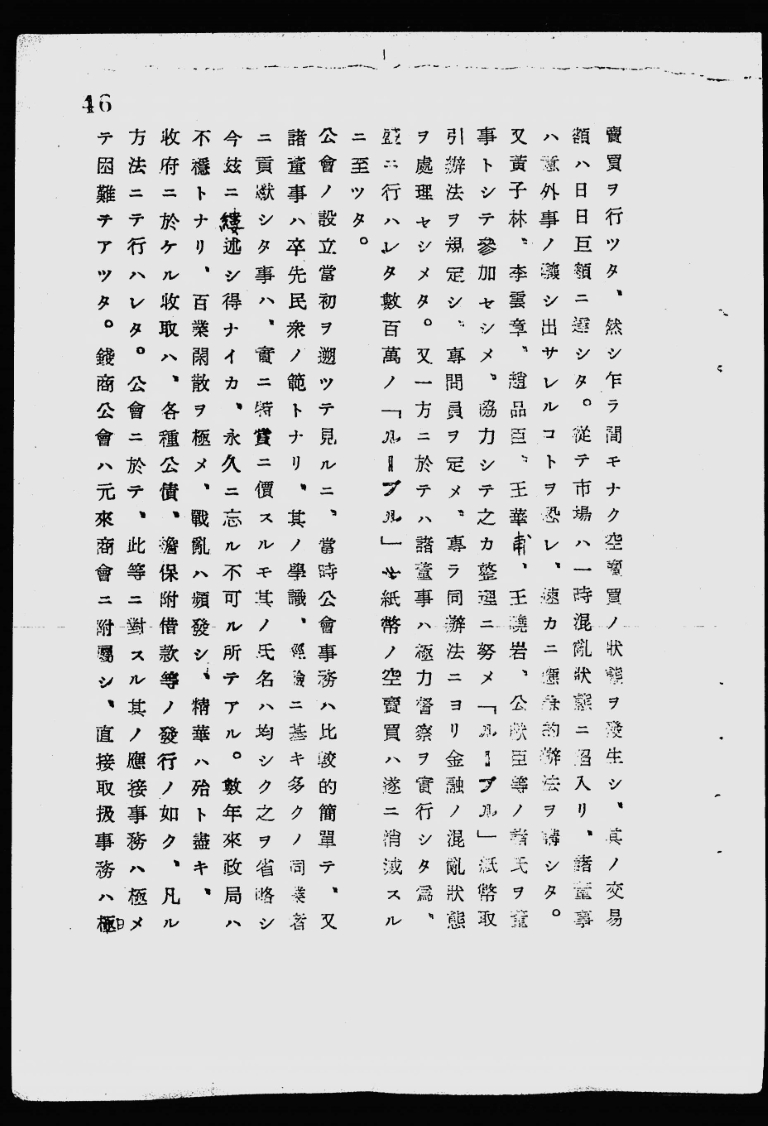 46
賣買ヲ行ツタ、然シ乍ラ間モナク空賣買ノ狀態ヲ發生シ、其ノ交易
額ハ日日巨額ニ達シタ。從テ市場ハ一時混亂狀態ニ陷入リ、諸董事
ハ意外事ノ釀シ出サレルコトヲ恐レ、速カニ應急的辦法ヲ講シタ。
又黃子林、李雲章、趙品臣、王華甫、王曉岩、公獻臣等ノ諸氏ヲ董
事トシテ參加セシメ、協力シテ之カ整理ニ努メ「ルーブル」紙幣取
引辦法ヲ規定シ、專問員ヲ定メ、專ラ同辦法ニヨリ金融ノ混亂狀態
ヲ處理セシメタ。又一方ニ於テハ諸董事ハ極力督察ヲ實行シタ爲、
盛ニ行ハレタ數百萬ノ「ルーブル」紙幣ノ空賣買ハ遂ニ消滅スル
ニ至ツタ。
公會ノ設立當初ヲ遡ツテ見ルニ、當時公會事務ハ比較的簡單テ、又
諸董事ハ卒先民衆ノ範トナリ、其ノ學識、經驗ニ基キ多クノ同業者
ニ貢獻シタ事ハ、實ニ特賞ニ價スルモ其ノ氏名ハ均シク之ヲ省略シ
今玆ニ縷述シ得ナイカ、永久ニ忘ル不可ル所テアル。數年來政局ハ
不穩トナリ、百業閑散ヲ極メ、戰亂ハ頻發シ、精華ハ殆ト盡キ、
收府ニ於ケル收取ハ、各種公債、擔保附借款等ノ發行ノ如ク、凡ル
方法ニテ行ハレタ。公會ニ於テ、此等ニ對スル其ノ應接事務ハ極メ
テ困難テアツタ。錢商公會ハ元來商會ニ附屬シ、直接取扱事務ハ極